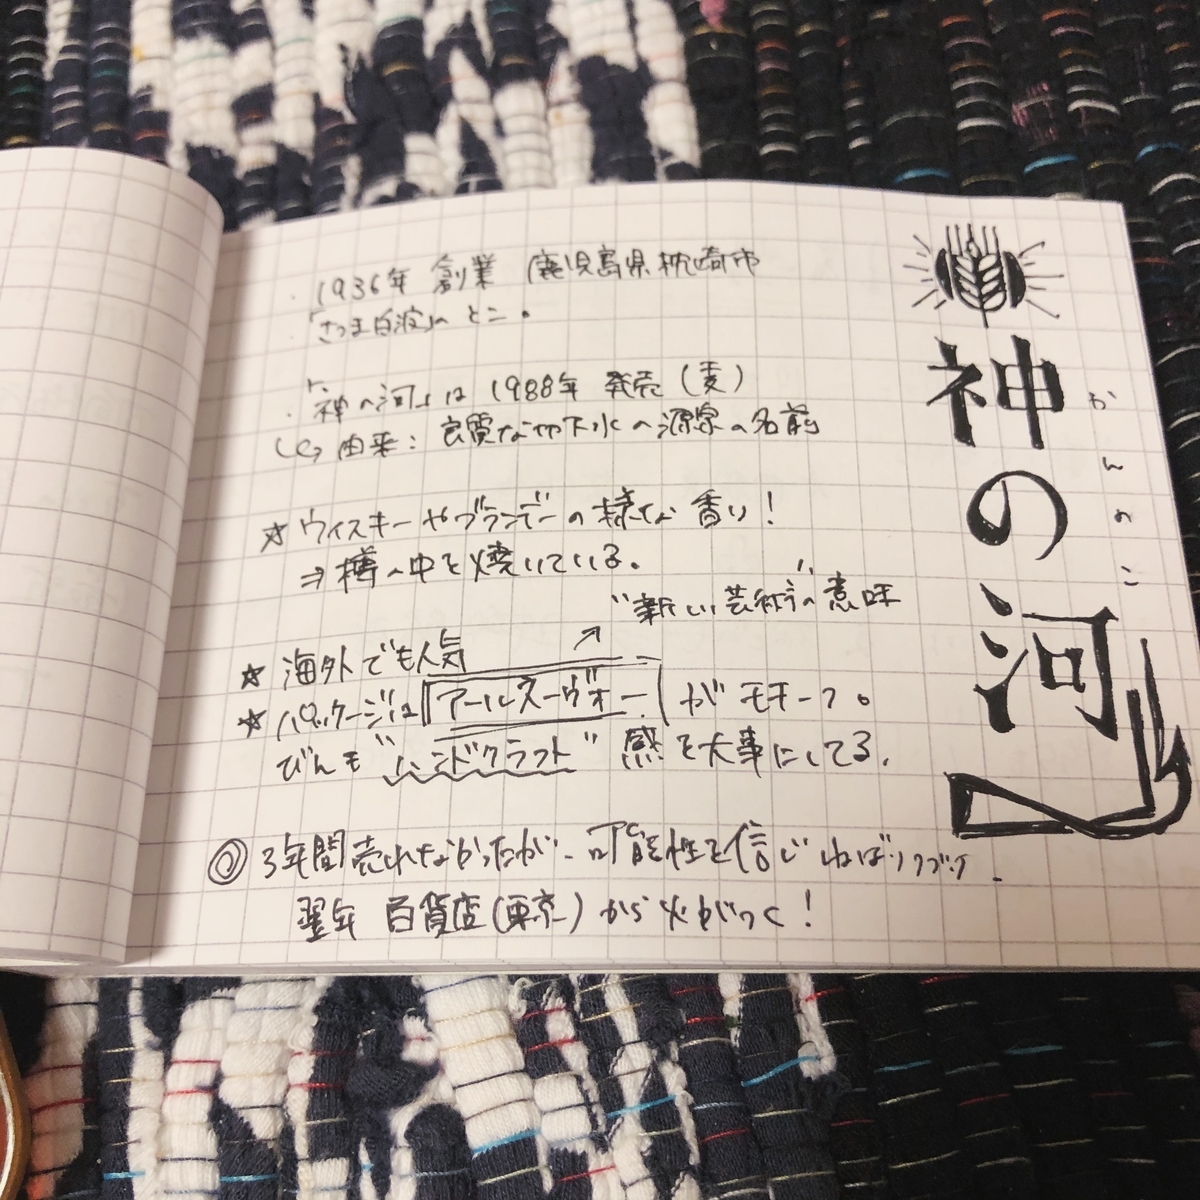 ・1936年 創業 鹿児島県枕崎市
「さつま白波」のとこ。
・「神の河」は 1988年 発売(麦)
↪ 由来: 良質な地下水の源泉の名前
☆ ウィスキーやブランデーの様な 香り!
⇒ 樽の中を焼いている。
"新しい芸術"の意味
☆ 海外でも人気
☆ パッケージは アールヌーヴォー が モチーフ。
びんも "ハンドクラフト" 感を大事にしてる。
◎ 3年間売れなかったが、可能性を信じ
翌年 百貨店(東京)から火がつく!
神の河
かんのこ